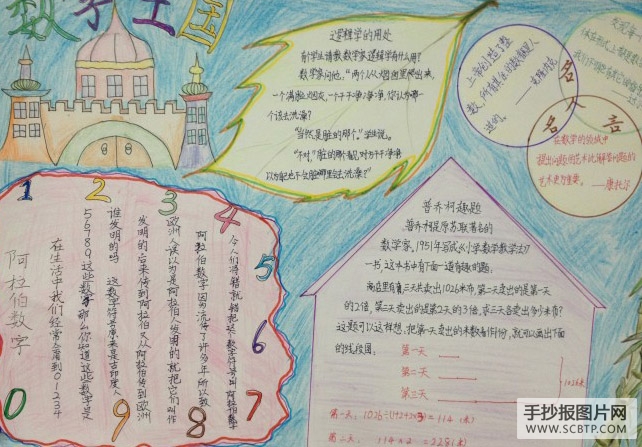 数学王国
逻辑学的用处
有学生请教数学家逻辑学有什么用?
数学家问他,"两个人从烟囱里爬出来,
一个满脸
一个干干净净,你认为哪一
个该去洗澡?
"当然是脏的那个。"学生说。
"不对,脏的那个看见对方干干净净
以为
也不会脏哪里会去洗澡?"
上帝创造了整
数,所有其余的数都是人
造的。
名人言
在数学的领域中
提出问题的艺术比解答问题的
艺术更为重要。——康托尔
1
2
3
4
5
6
7
8
9
0
阿拉伯数字
在生活中我们经常会看到01234
56789这些数字那么你知道这些数字是
谁发明的吗 这数字符号原来是古印度人
发明的后来传到阿拉伯又从阿拉伯传到欧洲
欧洲人误以为是阿拉伯人发明的就把它们叫作
阿拉伯数字因为流传了许多年所以
今人们将错就错把
数字符号叫阿拉伯数字
普乔柯趣题
普乔柯是原苏联著名的
数学家,1951年写成《小学数学教学法》
一书,这本书中有下面一道有趣的题。
商店里有
三天共卖出1026米布,第二天卖出的是第一天
的2倍,第三天卖出的是第2天的3倍,求三天各卖出多少米布?
这题可以这样想,把第一天卖出的米数看作1份,就可以画出下面
的线段图。
第一天
第二天
第三天
1026米
第一天:
=114(米)
第二天:114×2=228(米)
手抄报图片网
WWW.SCBTP.COM